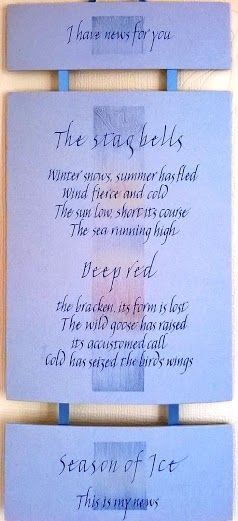 I have news for you
The stag bells
Winter snows, summer has fled
Wind fierce and cold
The sun low, short its course
The sea running high
Deep red
the bracken, its form is lost
The wild goose has raised
its accustomed call
Cold has seized the birds wings
Season of Ice
This is my news